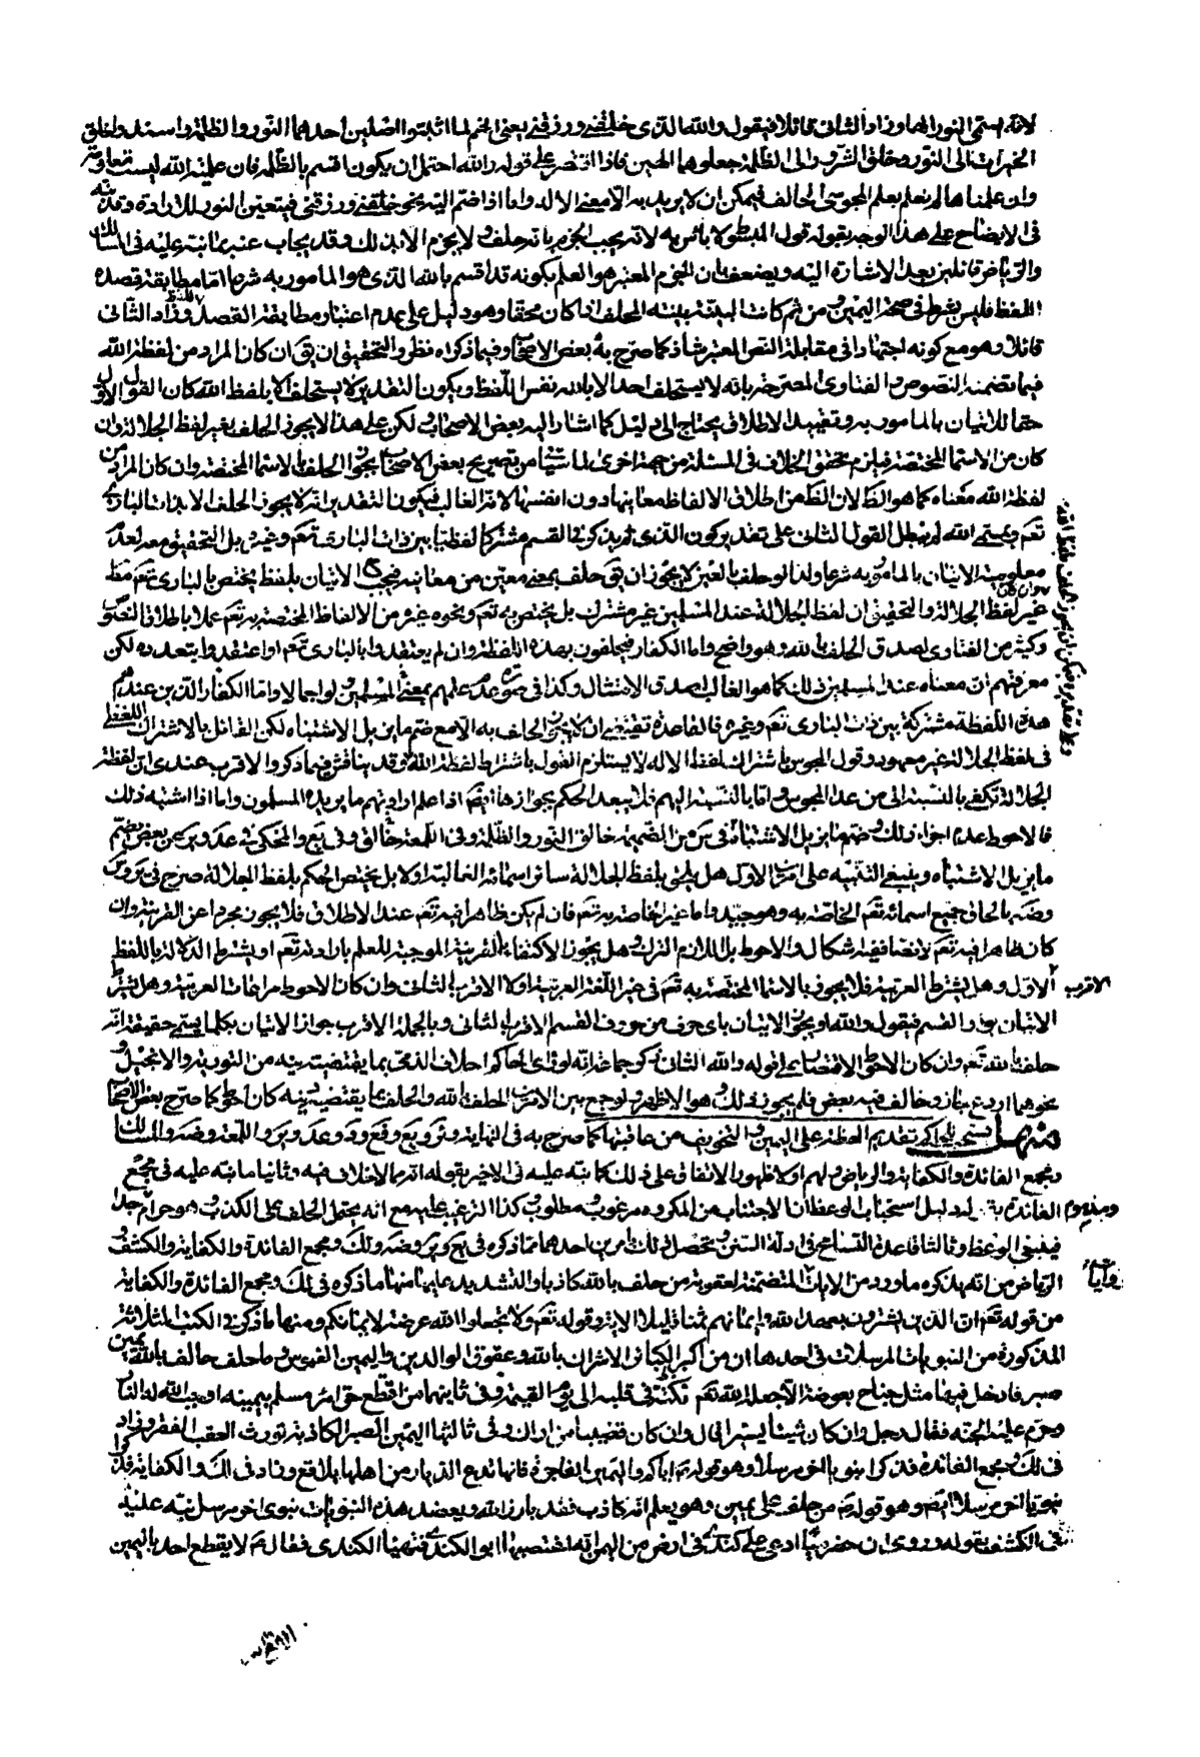 لانه يسمى النور الها وزاد الثانى قائلا فيقول والله الذى خلقنى ورزقنى يعنى انهم لما اثبتوا اصلين احدهما النور والظلمة واسندوا خلق
الخيرات الى النور وخلق الشرور الى الظلمة جعلوهما الهين فاذا اقتصر على قوله والله احتمل ان يكون اقسم بالظلمة فان علينا الله ليست
وان علمناها لم نعلم بعلم المجوسى الحالف فيمكن ان لا يريد به الا معنى الاله واما اذا ضم اليه نحو خلقنى ورزقنى فيتعين النور للارادة
فى الايضاح على هذا الوجه بقوله قول المبسوط لا باس به لانه يجب الجزم بانه حلف ولا يجزم الا بذلك وقد يجاب عنه بما نبه عليه فى المسالك
والرياض قائلين بعد الاشارة اليه ويضعف بان الجزم المعتبر هو العلم بكونه قد اقسم بالله الذى هو المامور به شرعا اما مطابقة قصده
اللفظ فليس بشرط فى صحة اليمين ومن ثم كانت النية نية المحلف اذا كان محقا وهو دليل على عدم اعتبار مطابقة القصد وزاد الثانى
قائلا وهو مع كونه اجتهادا فى مقابلة النص المعتبر شاذ كما صرح به بعض الاصحاب وفيما ذكراه نظر والتحقيق ان يق ان كان المراد من لفظة الله
فيما تضمنه النصوص والفتاوى المصرحة بانه لا يستحلف احد الا بالله نفس اللفظ ويكون التقدير لا يستحلف الا بلفظ الله كان القول الاول
حقا للاتيان بالمامور به وتقييد الاطلاق يحتاج الى دليل كما اشار اليه بعض الاصحاب لكن على هذا لا يجوز الحلف بغير لفظ الجلالة وان
كان من الاسماء المختصة فيلزم تحقق الخلاف فى المسئلة من جهة اخرى لما سيأتى من تصريح بعض الاصحاب بجواز الحلف بالاسماء المختصة وان كان المراد من
لفظة الله معناه كما هو الظ لان الظ من اطلاق الالفاظ معانيها دون انفسها لانه الغالب فيكون التقدير انه لا يجوز الحلف لا بذات البارى
تعم ويسمى الله لم يبطل القول الثانى على تقدير كون الذى ذكر فى القسم مشتركا لفظيا بين ذات البارى تعم وغيره بل التحقيق معه لعدم
معلومية الاتيان بالمامور به شرعا ولذا لو حلف بالغير لا يجوز ان يق حلف بمعنى معين من معانيه فيجب الاتيان بلفظ يختص بالبارى تعم
غير لفظ الجلالة والتحقيق ان لفظ الجلالة عند المسلمين غير مشترك بل يختص به تعم ونحوه غيره من الالفاظ المختصة به تعم عملا باطلاق النصوص
وكثير من الفتاوى لصدق الحلف بالله وهو واضح واما الكفار فيحلفون بهذه اللفظة وان لم يعتقدوا بالبارى تعم او اعتقدوا بتعدده لكن
معرفتهم ان معناه عند المسلمين ذلك كما هو الغالب لصدق الامتثال وكذا فى صورة عدم علمهم بمعنى المسلمين لو اجمالا واما الكفار الذين عندهم
هذه اللفظة مشتركة بين ذات البارى تعم وغيره فالقاعدة تقتضى ان لا يجوز الحلف به الا مع ضم ما يزيل الاشتباه لكن القائل بالاشتراك اللفظى
فى لفظ الجلالة غير معهود وقول المجوس باشتراك لفظ الاله لا يستلزم القول باشتراط لفظة الله وقد يناقش فيما ذكر والاقرب عندى ان لفظة
الجلالة تكفى بالنسبة الى من عدا المجوس واما بالنسبة اليهم فلا يبعد الحكم بجوازها ايضا اذا علم ارادتهم ما يريده المسلمون واما اذا اشتبه ذلك
فالاحوط عدم اجزاء ذلك وضم ما يزيل الاشتباه
ما يزيل الاشتباه وينبغى التنبيه على امور الاول هل يلحق بلفظ الجلالة سائر اسمائه الغالبة او لا بل يختص الحكم بلفظ الجلالة صرح فى
وضه بالحاق جميع اسمائه تعم الخاصة به وهو جيد واما غير الخاصة به تعم فان لم يكن ظاهرا فيه تعم عند الاطلاق فلا يجوز مجردا عن القرينة وان
كان ظاهرا فيه تعم لانصافيفه اشكال والاحوط بل اللازم الترك وهل يجوز الاكتفاء بالقرينة الموجبة للعلم بارادته تعم او يشترط الدلالة باللفظ
الاقرب الاول وهل يشترط العربية فلا يجوز بالاسماء المختصة به تعم فى غير اللغة العربية او لا الاقرب الثانى وان كان الاحوط مراعات العربية وهل يشترط
الاتيان بواو القسم فيقول والله او يجوز الاتيان باى حرف من حروف القسم الاقرب الثانى وبالجملة الاقرب جواز الاتيان بكلما يسمى حقيقة انه
حلف بالله تعم وان كان الاحوط الاقتصار على قوله والله الثانى لو راى الحاكم احلاف الذمى بما يقتضيه دينه من التورية والانجيل
نحوهما اردع جاز وخالف فيه بعض فلم يجوز ذلك وهو الاظهر ولو جمع بين الامرين الحلف بالله والحلف بما يقتضيه دينه كان احوط كما صرح بعض الاصحاب
منهل يستحب للحاكم تقديم العظة على اليمين والتخويف من عاقبتها كما صرح به فى النهاية وئر ويع وقع ود وعد وير واللمعة وضه والمسالك
ومجمع الفائدة والكفاية والرياض ولهم اولا ظهور الاتفاق على ذلك كما نبه عليه فى الاخير بقوله انه مما لا خلاف فيه وثانيا ما نبه عليه فى مجمع
الفائدة بقوله دليل استحباب الوعظ ان الاجتناب من المكروه مرغوب مطلوب كذا الترغيب عليه مع انه يحتمل الحلف على الكذب وهو حرام جدا
فينبغى الوعظ وثالثا قاعدة التسامح فى ادلة السنن وتحصل ذلك بامرين احدهما ما ذكره فى يع وير وضه ولك ومجمع الفائدة والكفاية والكشف
الرياض من انه يذكره ما ورد من الايات المتضمنة لعقوبة من حلف بالله كاذبا والتشديد عليها منها ما ذكره فى لك ومجمع الفائدة والكفاية
من قوله تعم ان الذين يشترون بعهد الله وايمانهم ثمنا قليلا الاية وقوله تعم ولا تجعلوا الله عرضة لايمانكم ومنها ما ذكر فى الكتب الثلاثة
المذكورة من النبويات المرسلات فى احدها ان من اكبر الكبائر الاشراك بالله وعقوق الوالدين واليمين الغموس وما حلف حالف بالله يمين
صبر فادخل فيها مثل جناح بعوضة الا جعل الله تعم نكتة فى قلبه الى يوم القيمة وفى ثانيها من اقتطع حق امرئ مسلم بيمينه اوجب الله له النار
وحرم عليه الجنة فقال رجل وان كان شيئا يسيرا قال وان كان قضيبا من اراك وفى ثالثها اليمين الصبر الكاذبة تورث العقب الفقر وزاد
فى لك ومجمع الفائدة فذكرا نبويا اخر مرسلا وهو قوله ص اياكم واليمين الفاجرة فانها تدع الديار من اهلها بلاقع وزاد فى لك والكفاية فذكرا
نبويا اخر مرسلا ايضا وهو قوله ص من حلف على يمين وهو يعلم انه كاذب فقد بارز الله ويعضد هذه النبويات نبوى اخر مرسل نبه عليه
فى الكشف بقوله وروى ان حضرميا ادعى على كندى فى ارض من اليمن انه اغتصبها ابو الكندى فتهيأ الكندى فقال ص لا يقطع احد باليمين